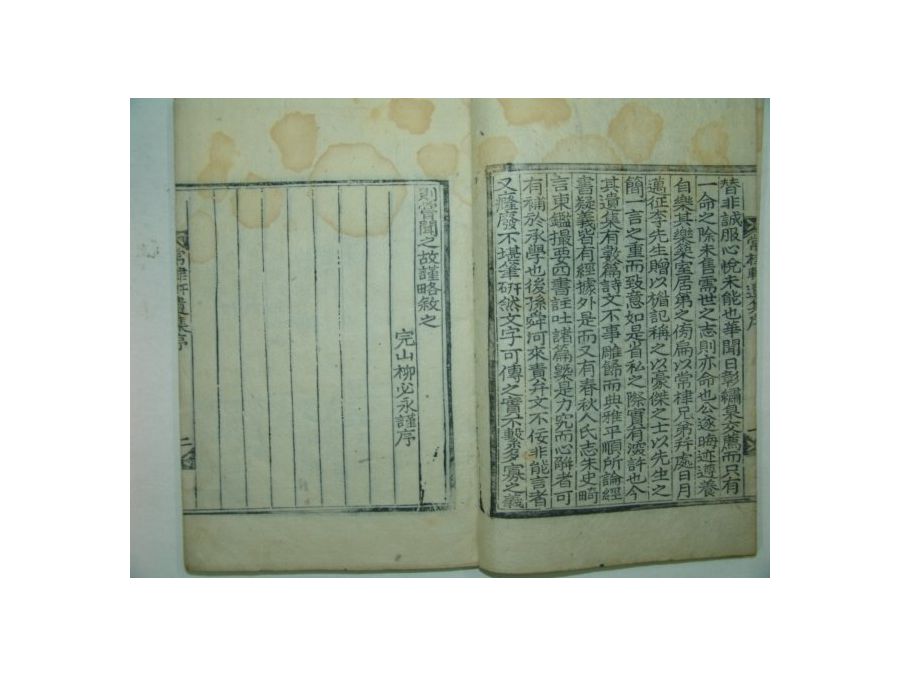 替非誠服心悅未能也華聞日彰繡臬交薦而只有
一命之除未售需世之志則亦命也公遂晦迹遵養
自樂其樂築室居第之側扁以常棣兄弟并處日月
邁征李先生贈以楣記稱之以豪傑之士以先生之
簡一言之重而致意如是省私之際實有深許也今
其遺集有數篇詩文不事雕餙而典雅平順所論經
書疑義皆有經據外是而又有春秋人氏志朱史畸
言東鑑撮要四書註吐諸篇槩是力究而心觧者可
有補於承學也後孫舜河來責弁文不佞非能言者
又癃廢不堪筆硏然文字可傳之實不繫多寡之義
則嘗聞之故謹略敘之
完山柳必永謹序
常棣軒遺集序
一
常棣軒遺集序
二